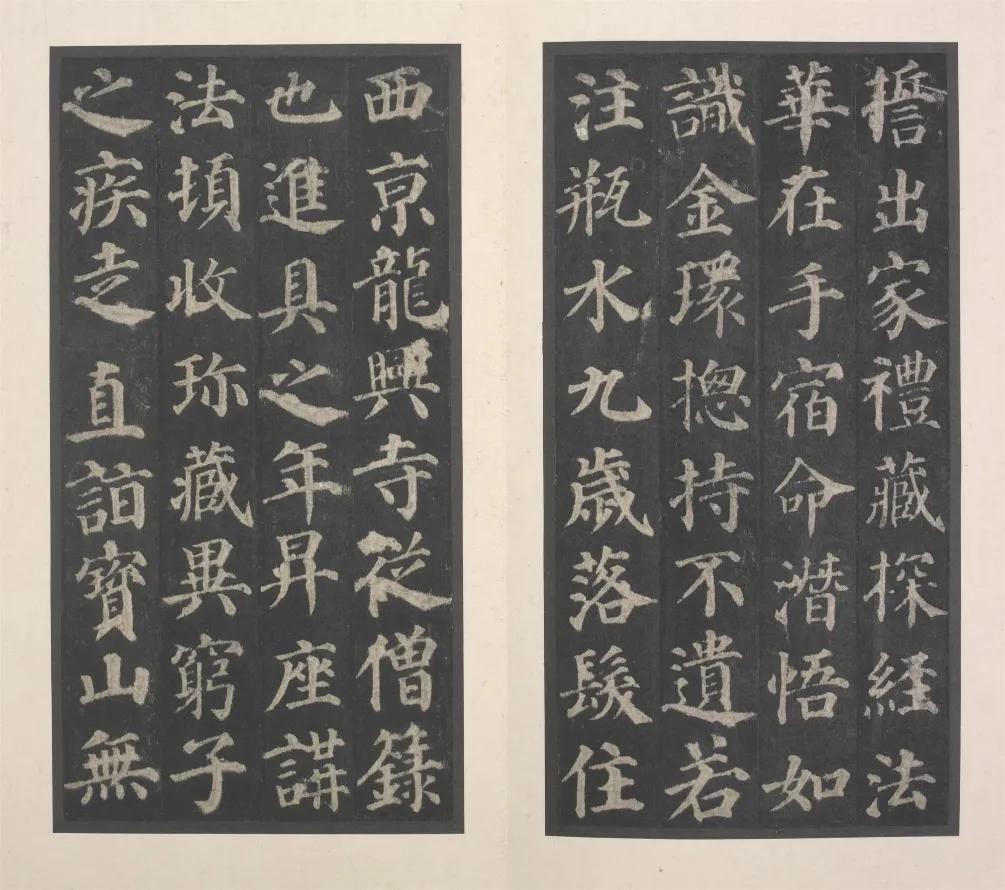 誓出家禮藏探經法
華在手宿命潛悟如
識金環摠持不遺若
注瓶水九歲落髮住
西京龍興寺從僧籙
也進具之年昇座講
法頓收珎藏異窮子
之疾走直詣寶山無